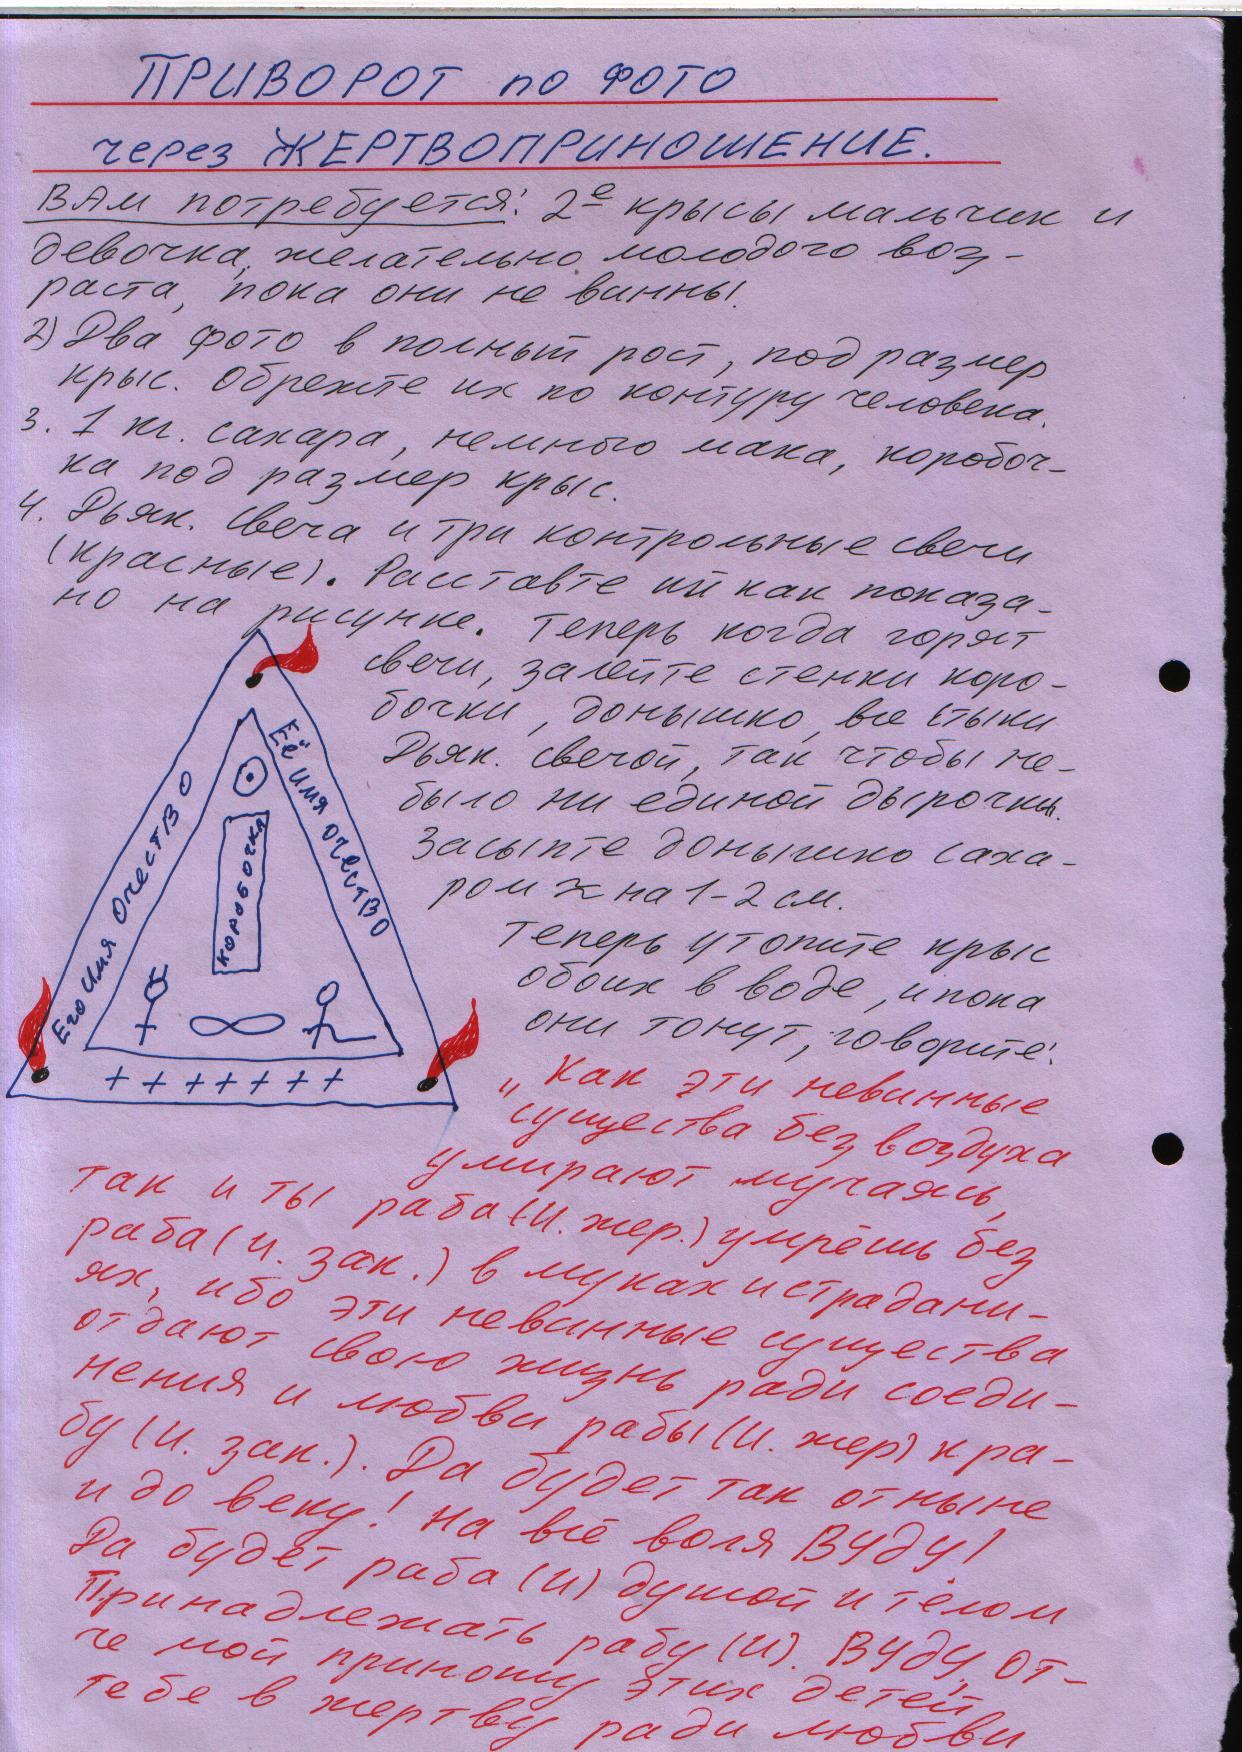 ПРИВОРОТ по ФОТО
через ЖЕРТВОПРИНОШЕНИЕ.
ВАМ потребуется: 2е крысы мальчик и
девочка, желательно молодого воз-
раста, пока они не винны.
2) Два фото в полный рост, под размер
крыс. Обрежте их по контуру человека.
3. 1 кг. сахара, немного мака, коробоч-
ка под размер крыс.
4. Дьяк. свеча и три контрольные свечи
(красные). Расставте ий как показа-
но на рисунке. Теперь когда горят
свечи, залейте стенки коро-
бочки, донышко, все стыки
Дьяк. свечой, так чтобы не-
было ни единой дырочки.
Засыпте донышко саха-
ром ж на 1-2 см.
Теперь утопите крыс
обоих в воде, и пока
они тонут, говорите:
Её имя отчество
Его имя отчество
КОРОБОЧКА
+ + + + + + +
„Как эти невинные
существа без воздуха
умирают мучаясь,
так и ты раба (И. жер.) умрёшь без
раба (И. зак.) в муках и страдани-
ях, ибо эти невинные существа
отдают свою жизнь ради соеди-
нения и любви рабы (И. жер) к ра-
бу (И. зак.). Да будет так отныне
и до веку! На всё воля ВУДУ!
Да будет раба (И) душой и телом
Принадлежать рабу (И). ВУДУ, от-
че мой приношу этих детей
тебе в жертву ради любви